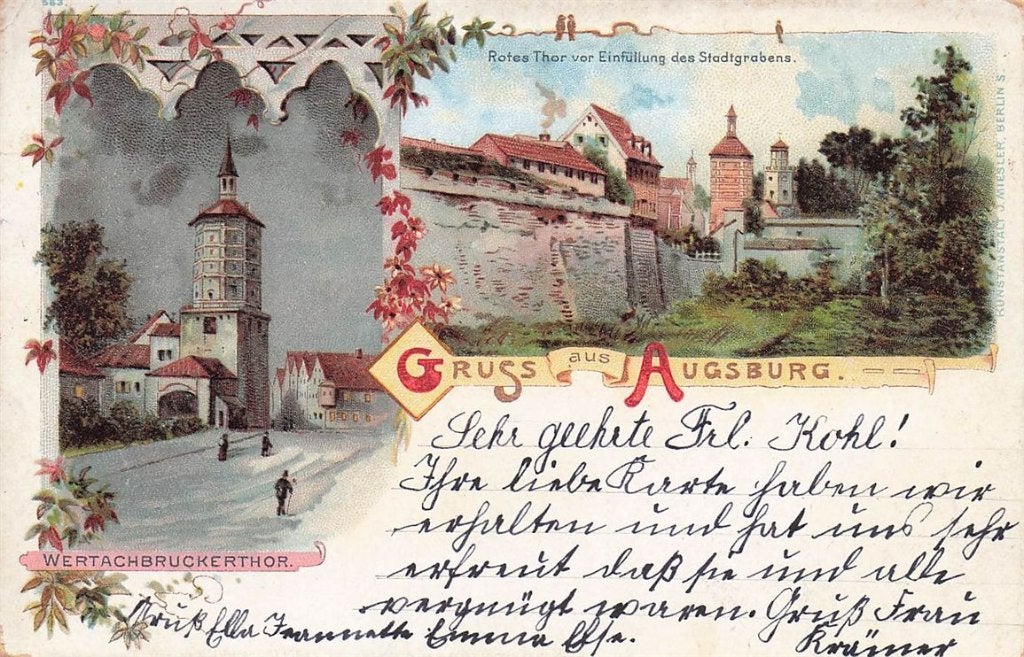 583.
Rotes Thor vor Einfüllung des Stadtgrabens.
KUNSTANSTALT J. MIESLER, BERLIN S
GRUSS aus AUGSBURG.
WERTACHBRUCKERTHOR.
Sehr geehrte Frl. Kohl!
Ihre liebe Karte haben wir
erhalten und hat uns sehr
erfreut daß sie und alle
vergnügt waren. Gruß Frau
Krämer
Gruß Ella Jeannette Emma Else.